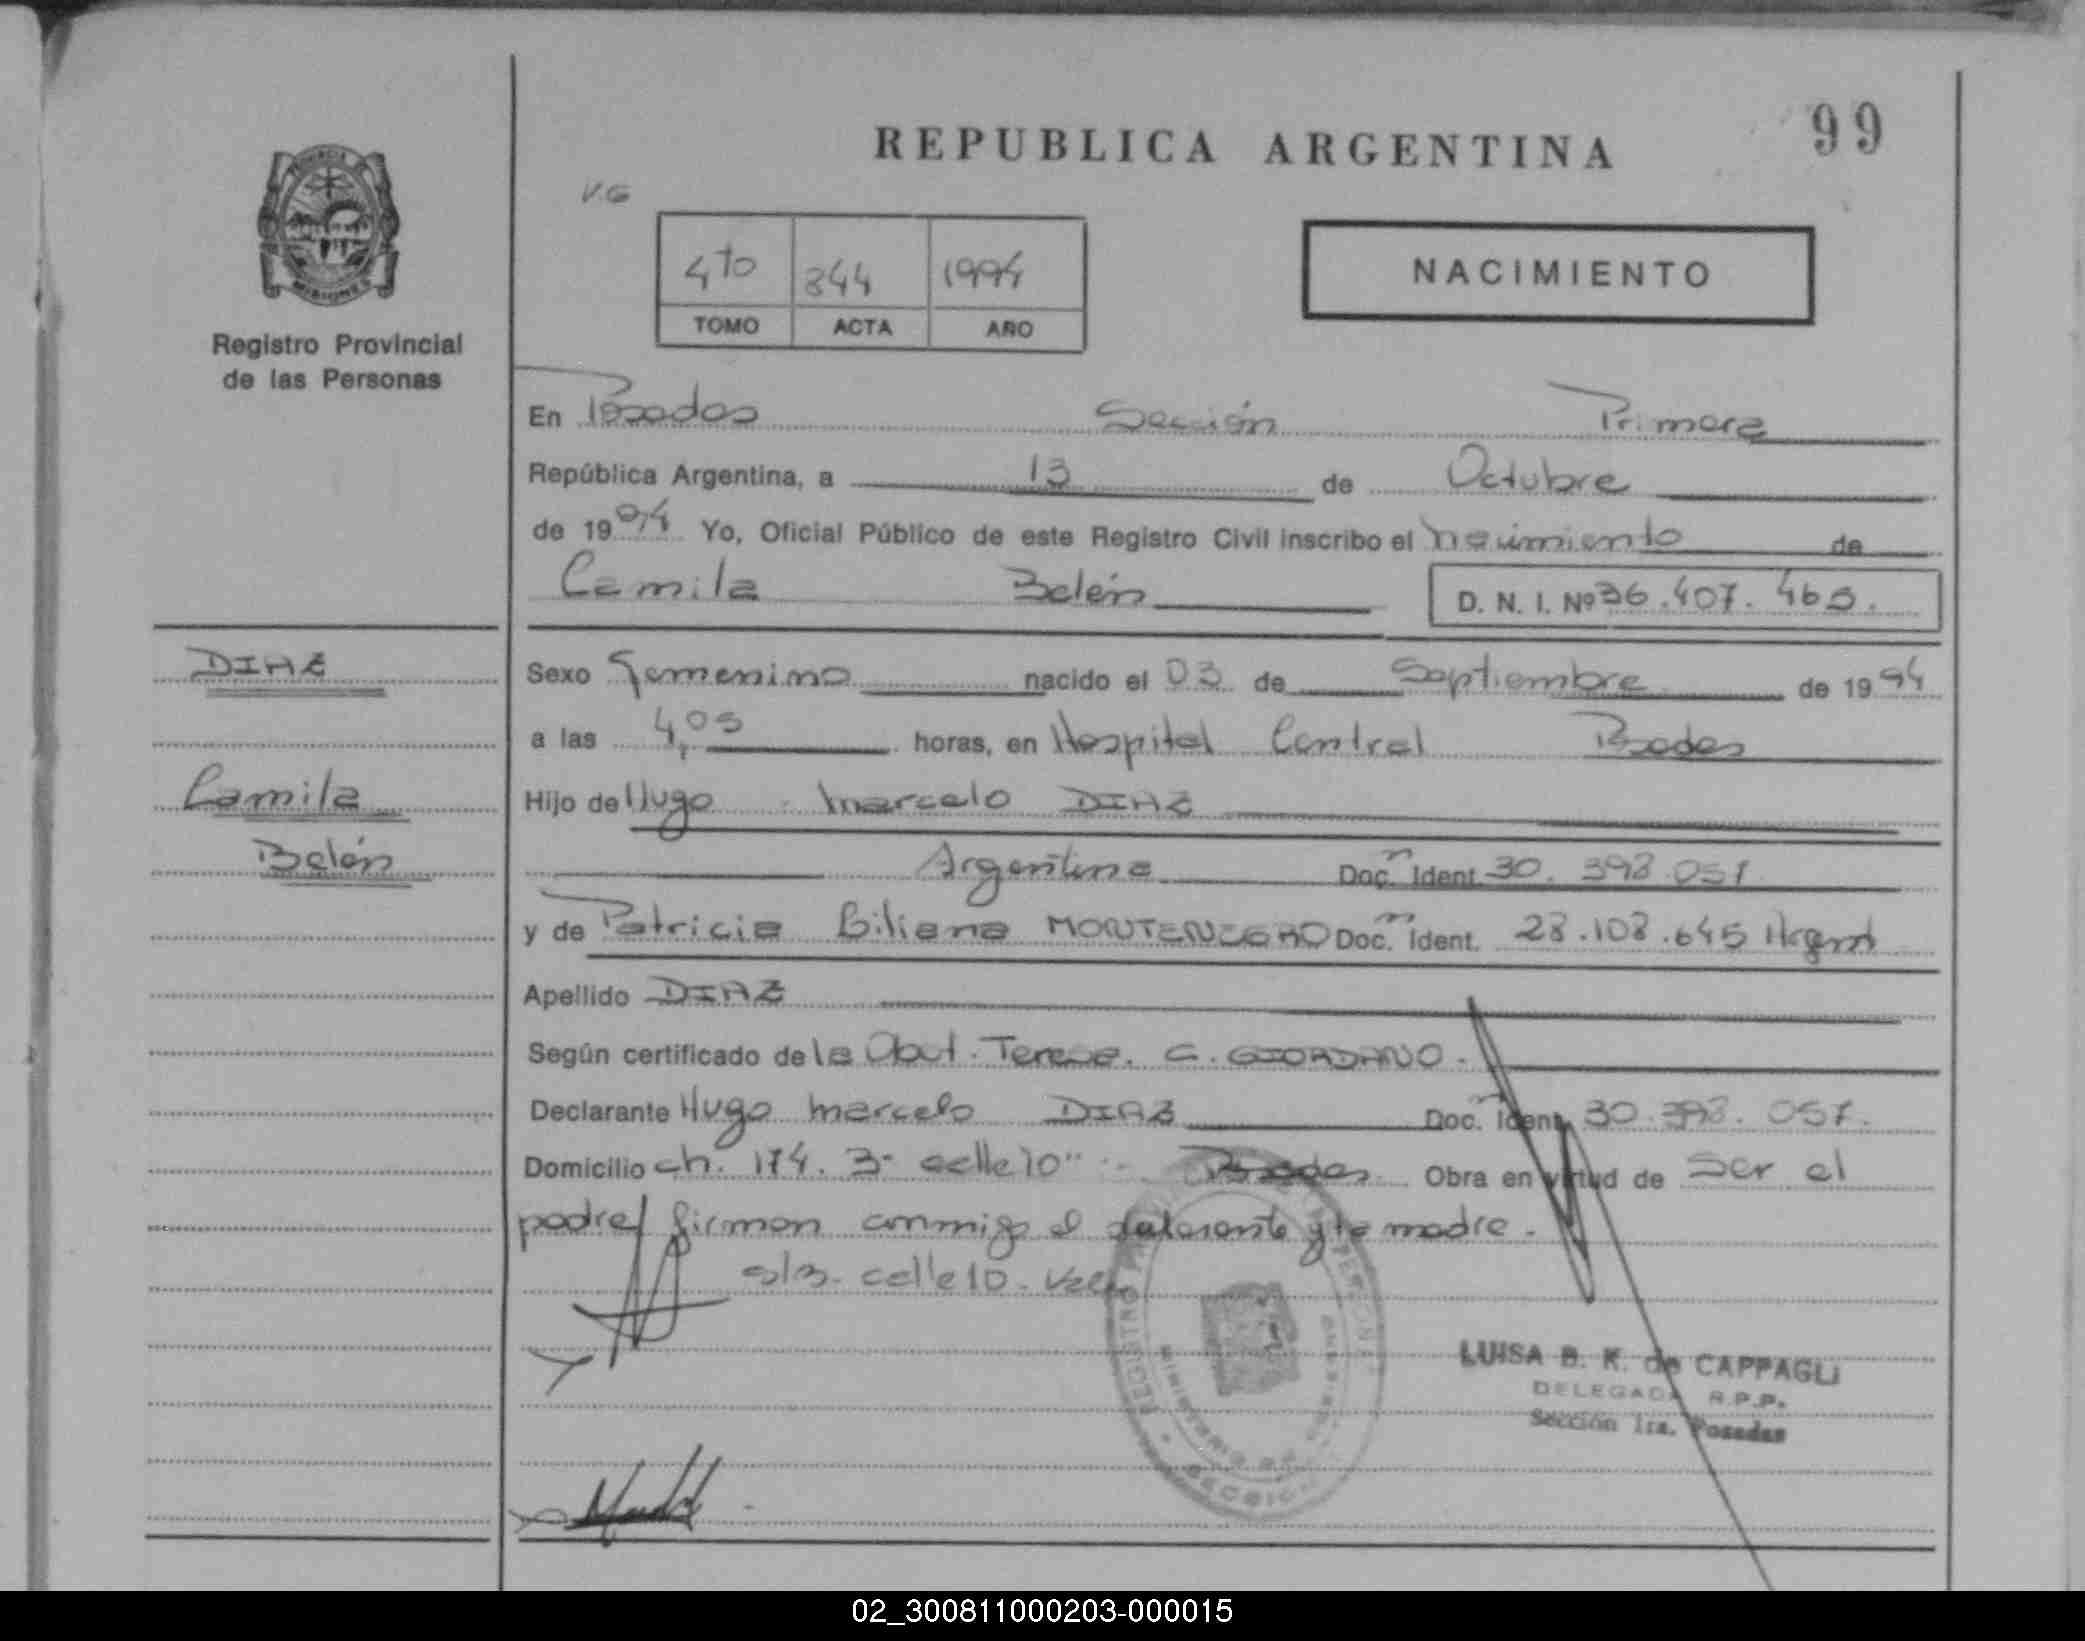 REPUBLICA ARGENTINA
99
V.G
4to 844 1994
TOMO ACTA AÑO
NACIMIENTO
MISIONES
Registro Provincial
de las Personas
En Posadas Sección Primera
República Argentina, a 13 de Octubre
de 1994 Yo, Oficial Público de este Registro Civil inscribo el nacimiento de
Camila Belén D. N. I. Nº 36.407.465.
DIAZ
Camila
Belén
Sexo Femenino nacido el 03 de Septiembre de 1994
a las 4,05 horas, en Hospital Central Posadas
Hijo de Hugo Marcelo DIAZ
Argentina Doc. Ident. 30.398.057
y de Patricia Biliana MONTENEGRO Doc. Ident. 28.108.645 Argent
Apellido DIAZ
Según certificado de la Obst. Teresa. C. GIORDANO.
Declarante Hugo Marcelo DIAZ Doc. Ident. 30.398.057.
Domicilio ch. 174. 3- calle 10" Posadas Obra en virtud de Ser el
padre/ firman conmigo el declarante y la madre.
calle 10. Vale
LUISA B. K. de CAPPAGLI
DELEGADA R.P.P.
Sección 1ra. Posadas
02_300811000203-000015